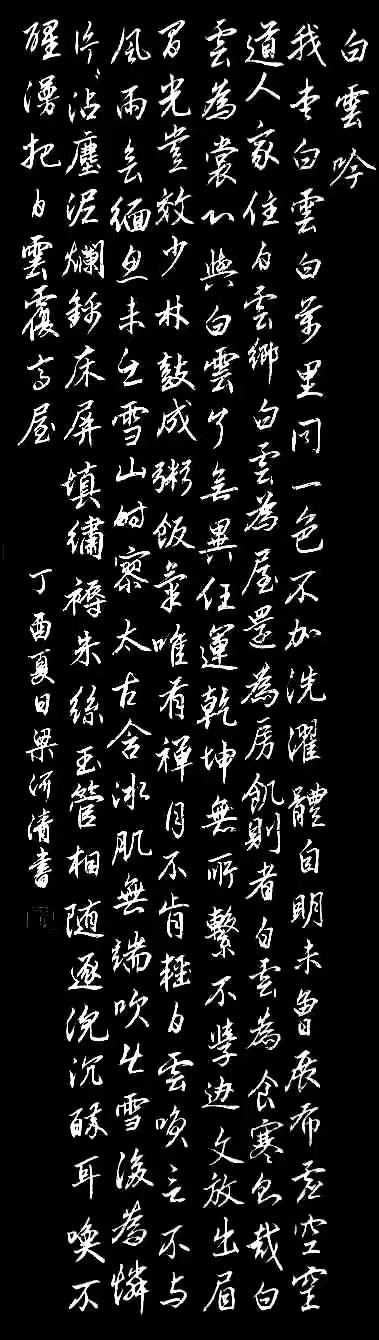 白雲吟
我本白雲白萬里同一色不加洗濯體自明未曾展布虛空空
道人家住白雲鄉白雲為屋還為房飢則煮白雲為食寒則裁白
雲為裳心與白雲了無異任運乾坤無所繫不學边文放出眉
間光豈效少林鼓成粥飯氣唯有禪月不肯輕白雲喚之不与
風雨会緬思未之雪山時寥太古含冰肌無端吹生雪後為憐
片片沾塵泥爛錦床屏填繡褥朱絲玉管相随逐浼沉酥耳喚不
醒湧把白雲覆高屋
丁酉夏日梁河清書